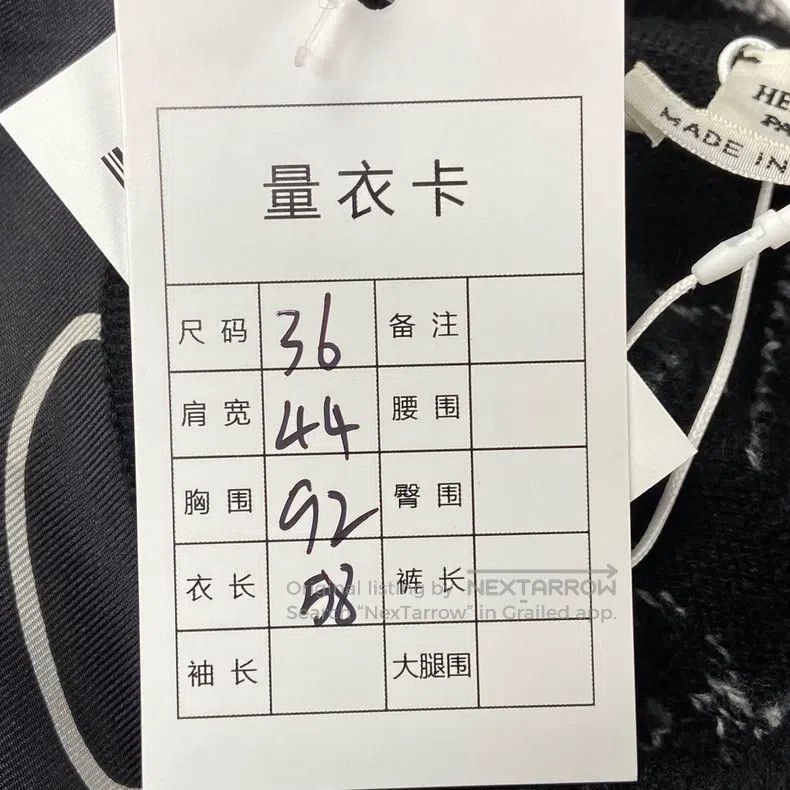 量衣卡
尺码 36 备注
肩宽 44 腰围
胸围 92 臀围
衣长 58 裤长
袖长 大腿围
MADE IN
Original listing by NEXTARROW
Search “NexTarrow” in Grailed app.